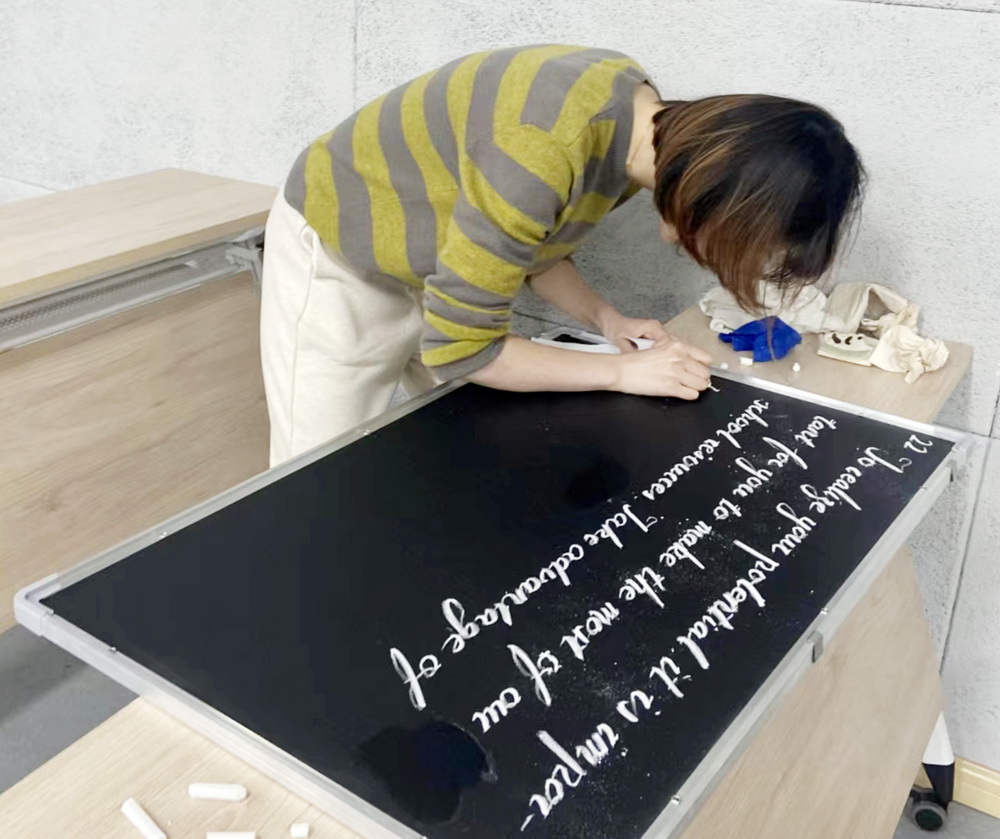 22 To realize your potential. it is impor-
tant for you to make the most of our
school resources. Take advantage of